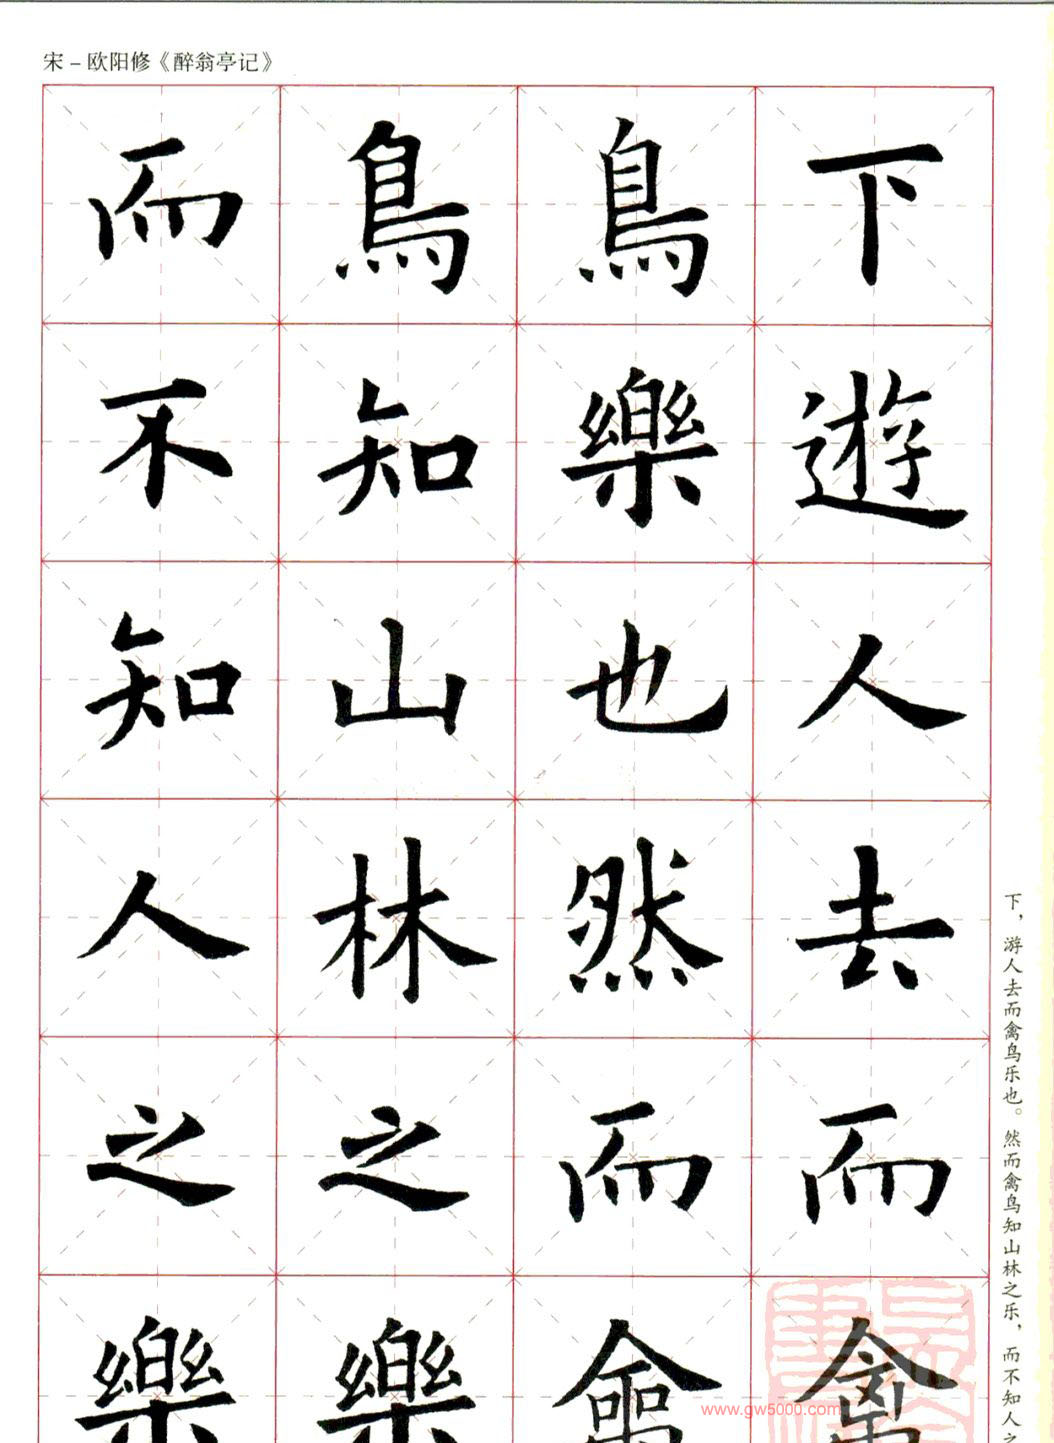 宋－欧阳修《醉翁亭记》
下遊人去而禽
鳥樂也然而禽
鳥知山林之樂
而不知人之樂
下，游人去而禽鸟乐也。然而禽鸟知山林之乐，而不知人之
www.gw5000.com